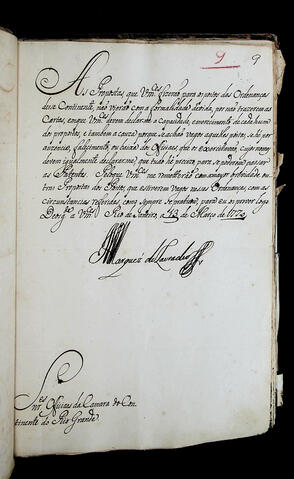 9 9
As Propostas que Vm.ces fizerão para os postos das Ordenanças
desse Continente, não vierão com a formalidade devida, por não trazerem as
Cartas, em que Vm.ces devem declarar a capacidade, e merecimento de cada hum
dos propostos, e tambem a cauza, porque se achão vagos aquelles postos, se hé por
auzencia, falecimento, ou baixa dos Officiaes, que os exercitavão, cujos nomes
devem igualmente declararme, que tudo hé precizo para se poderem passar
as Patentes. Pelo que Vm.ces me remetterão com a mayor brevidade ou-
tras Propostas dos Postos, que estiverem vagos nessas Ordenanças, com as
circunstancias referidas, como sempre se praticou, para eu os prover logo
Deos g.e a Vm.ces Rio de Janeiro, a 13 de Março de 1772
Marquez do Lavradio
S.res
Officiaes da Camara do Con-
tinente do Rio Grande